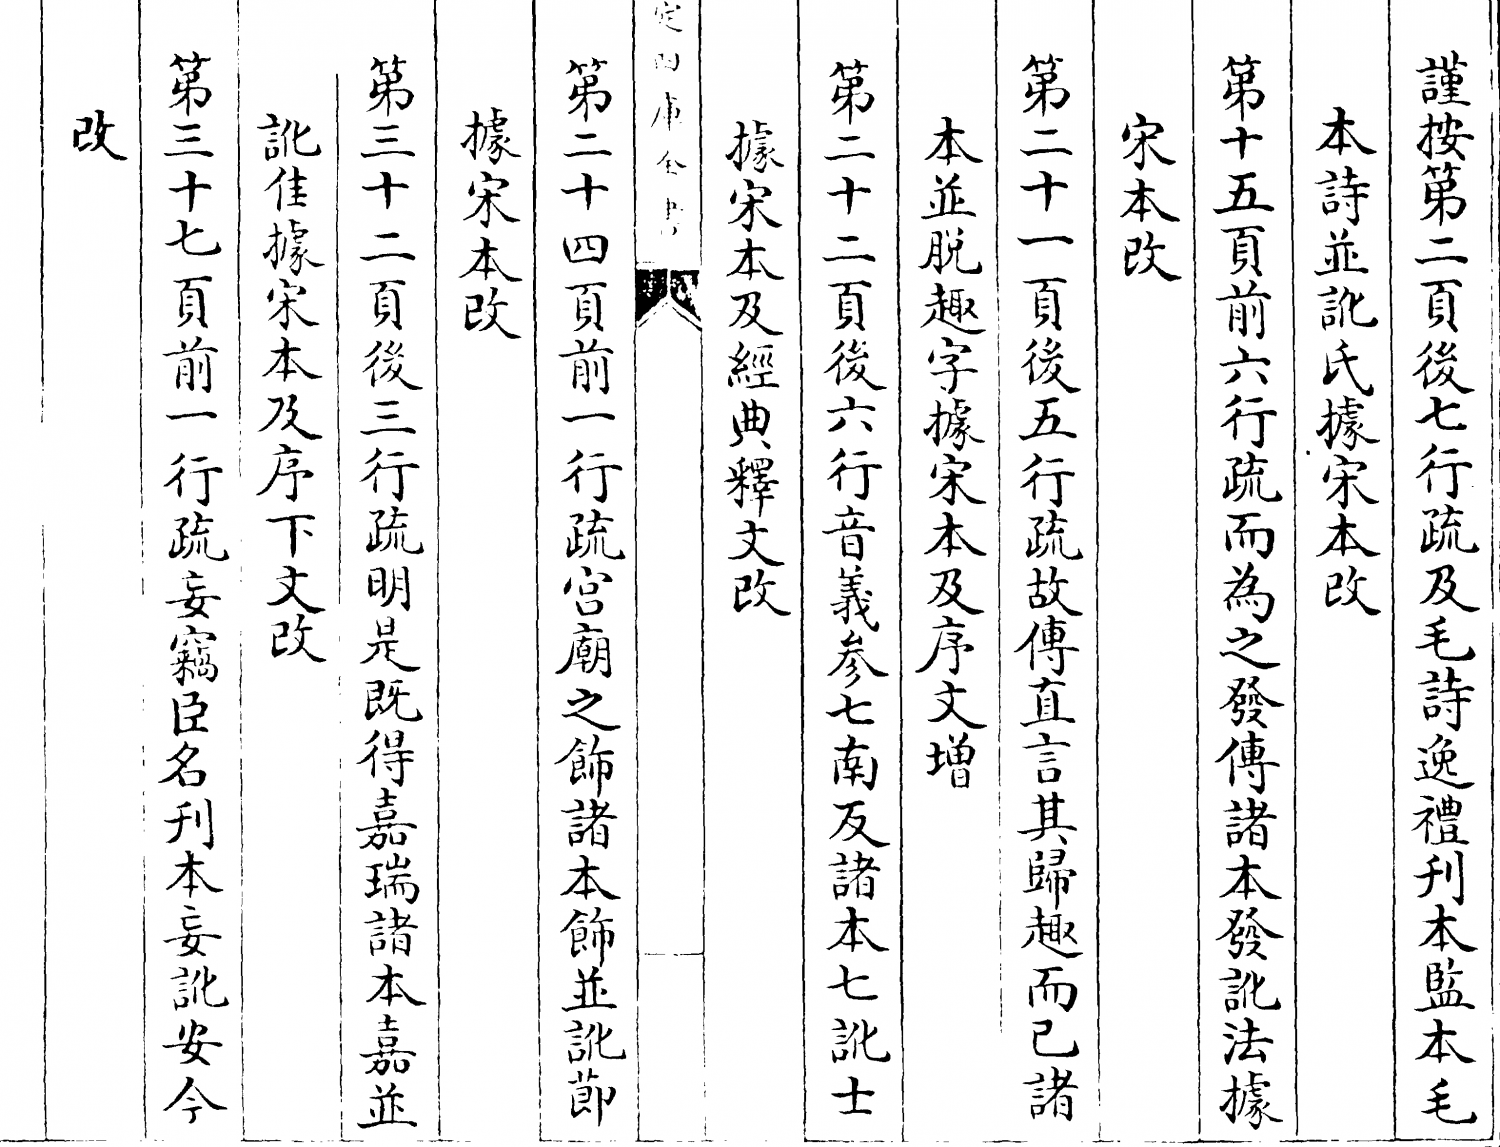 謹按第二頁後七行疏及毛詩逸禮刋本監本毛
本詩並訛氏據宋本改
第十五頁前六行疏而為之發傳諸本發訛法據
宋本改
第二十一頁後五行疏故傳直言其歸趣而已諸
本並脱趣字據宋本及序文增
第二十二頁後六行音義參七南反諸本七訛士
據宋本及經典釋文改
定四庫全書
第二十四頁前一行疏宫廟之飾諸本飾並訛節
據宋本改
第三十二頁後三行疏明是既得嘉瑞諸本嘉並
訛佳據宋本及序下文改
第三十七頁前一行疏妄竊臣名刋本妄訛安今
改